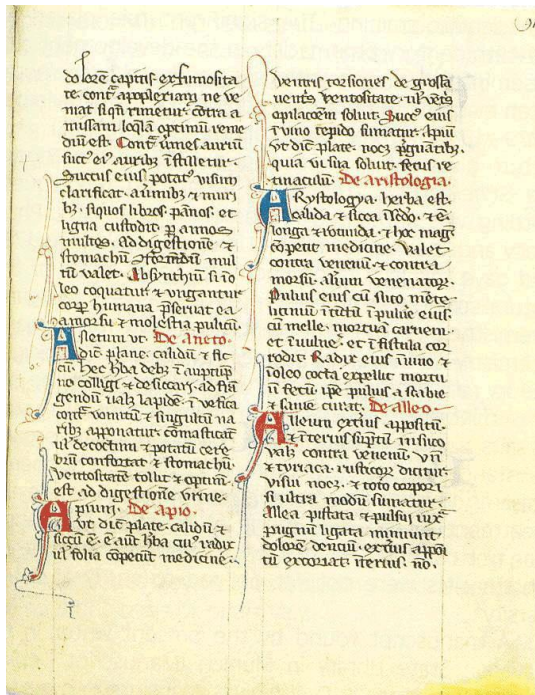 dolorem capitis ex fumosita
te. contͣ apoplexiam ne ve
niat siqͥ timetur. Contra a
missam loq̃lam optimũ reme
diũ est. Contͣ v̾mes auriũ
succꝰ eiꝰ auribꝫ ĩstilletur.
Succus eiꝰ potatꝰ visum
clarificat. a v̾mibꝫ ⁊ muri
bꝫ. siquos libros. pãnos. et
ligna custodit ꝑ annos
multos. ad digestionẽ ⁊
stomachũ ꝯfortãdũ mul
tũ valet. Absynthiũ si ĩ o
leo coquatur ⁊ ungantur
corꝑ humana p̃servat ea
a morsu ⁊ molestia pulicũ.
Anetum ut De aneto.
dic̃ plate. calidũ ⁊ sic
cũ.
no colligi ⁊ desiccari. ad frã
gendũ valꝫ lapidẽ. ĩ vesica
contͣ vomitũ ⁊ singultũ na
ribꝫ apponatur. ꝯmasticatũ
ul̾ decoctũ ⁊ potatũ cere
brũ confortat ⁊ stomachũ.
ventositatẽ tollit ⁊ optimũ
est. ad digestionẽ urine.
Apium. De apio.
ut dic̃ plate. calidũ ⁊
siccũ ẽ. ẽ aut̃ hba cuiꝰ radix
ul̾ folia cõpetũt medicine.
ventris torsiones de grossa
ventris ventositate.
opilacõem solvit. Succꝰ eius
ĩ vino tepido sumatur. apiũ
ut dic̃ plate. nocꝫ p̃gnãtibꝫ
quia vi sua solvit. fetus re
tinaculũ. De aristologia.
Arystologya. herba est.
calida ⁊ sicca ĩ scd̾o. ⁊ ẽ
longa ⁊ rotunda. ⁊ hec magͥ
cõpetit medicine. valet
contra venenũ ⁊ contra
morsũ. aliũm venenatoꝝ.
Pulvis eiꝰ cũ succo mẽte.
licinuũ ĩtĩctũ ĩ pulve eiꝰ.
cũ melle. mortuã carnem.
et ĩ vulnẽ. et ĩ fistula cor
rodit. Radix eius ĩ vino ⁊
ĩ oleo cocta expellit mortu
ũ fetũ. ip̃e pulvis a scabie
⁊ sanie curat. De alleo.
Alleum extͥus appositũ.
⁊ ĩteriꝰ sũptũ in succo
valꝫ contra venenũ. vñ
⁊ tyriaca. rusticoꝝ dicitur.
visui nocꝫ. ⁊ toto corpori
si ultra modũ sumatur.
Allea pistata ⁊ pulsui iuxͣ
pugnũ ligata minuunt
dolorẽ denciũ. extͥus appoi
tũ excoriat. ĩteriꝰ. nõ.